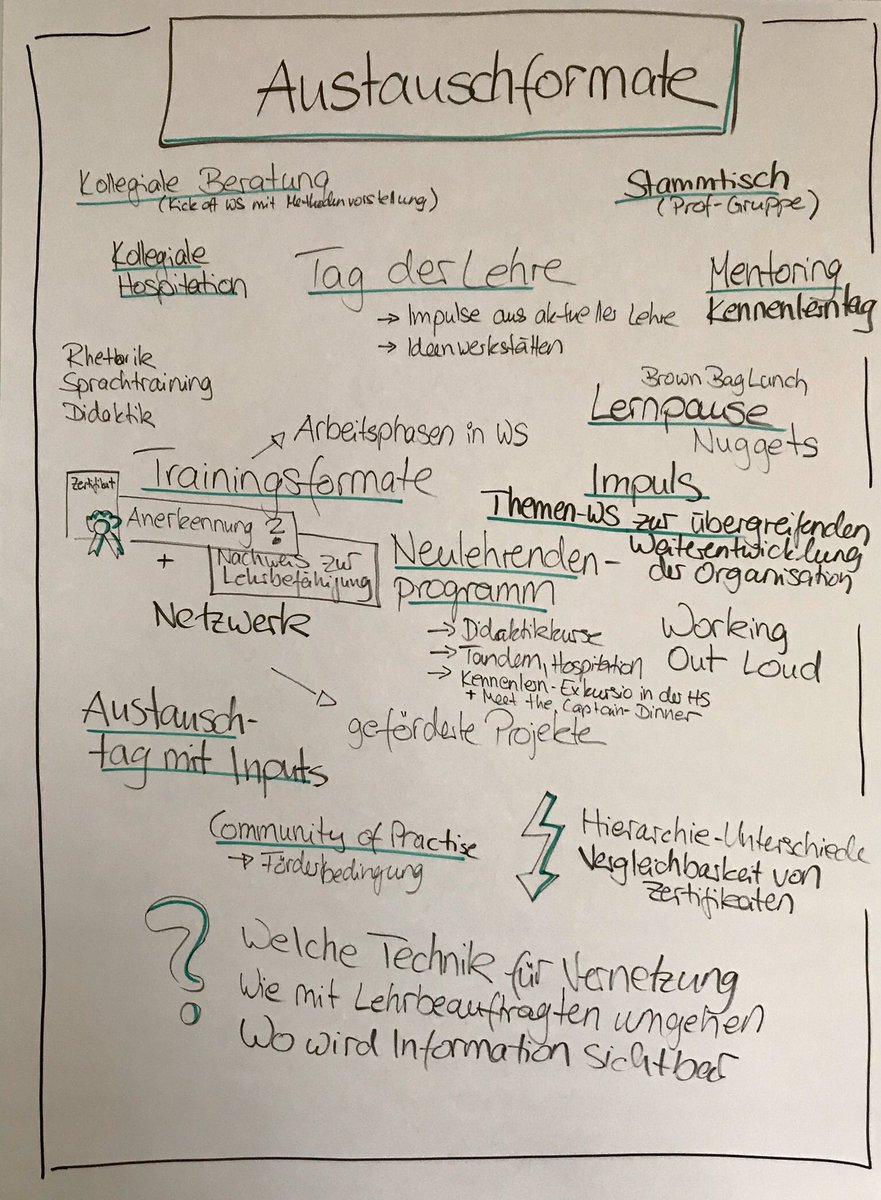 Austauschformate
Kollegiale Beratung
(Kick off WS mit Methodenvorstellung)
Stammtisch
(Prof-Gruppe)
Kollegiale
Hospitation
Tag der Lehre
→ Impulse aus aktueller Lehre
→ Ideenwerkstätten
Mentoring
Kennenlerntag
Rhetorik
Sprachtraining
Didaktik
Brown Bag Lunch
Lernpause
Nuggets
Arbeitsphasen in WS
Trainingsformate
Zertifikat
Anerkennung ?
+
Nachweis zur
Lehrbefähigung
Netzwerk
Impuls
Themen-WS zur übergreifenden
Weiterentwicklung
der Organisation
Neulehrenden-
programm
→ Didaktikkurse
→ Tandem, Hospitation
→ Kennenlern-Exkursio in der HS
+ Meet the Captain-Dinner
Working
Out Loud
geförderte Projekte
Austausch-
tag mit Inputs
Community of Practise
→ Förderbedingung
Hierarchie-Unterschiede
Vergleichbarkeit von
Zertifikaten
?
Welche Technik für Vernetzung
Wie mit Lehrbeauftragten umgehen
Wo wird Information sichtbar